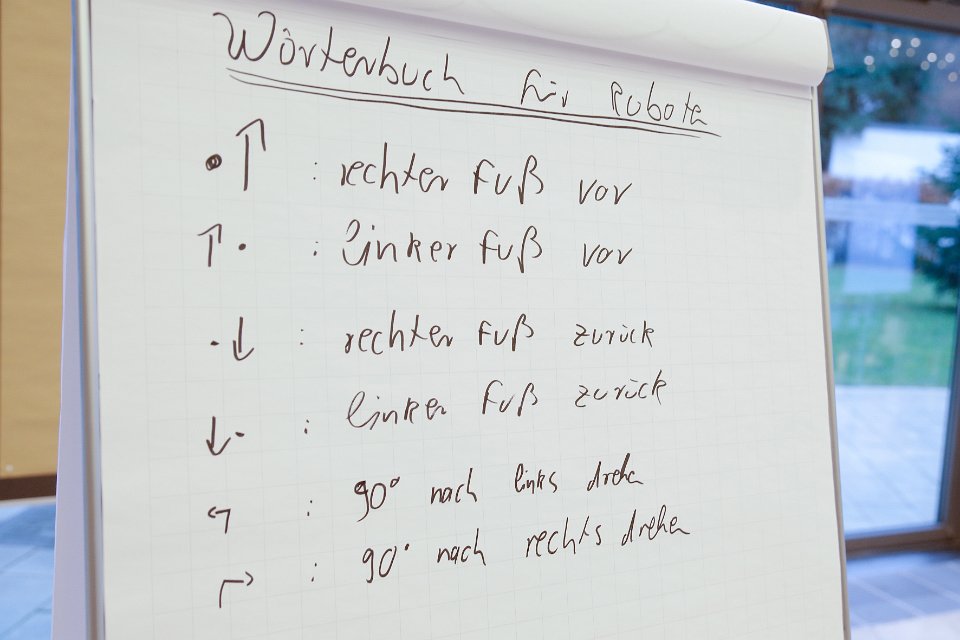 Wörterbuch für Robota
• ↑ : rechter Fuß vor
↑ • : linker Fuß vor
• ↓ : rechter Fuß zurück
↓ • : linker Fuß zurück
↰ : 90° nach links drehen
↱ : 90° nach rechts drehen